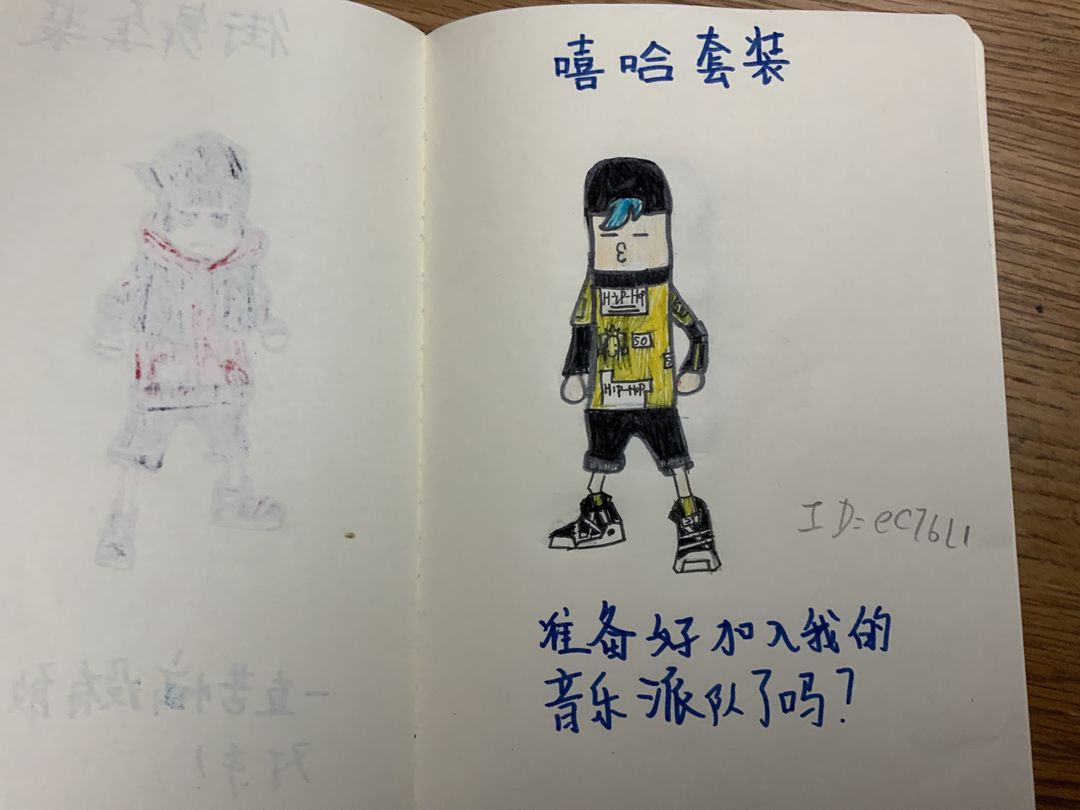 嘻哈套装
HIP-HOP
SO
S
HIP-HOP
ID=eC7bL1
准备好加入我的
音乐派队了吗?